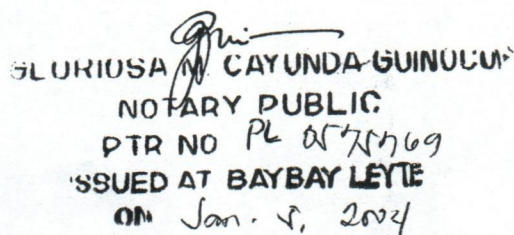 GLORIOSA M. CAYUNDA-GUINOCUR
NOTARY PUBLIC
PTR NO PL
ISSUED AT BAYBAY LEYTE
ON Jan. 5, 2004